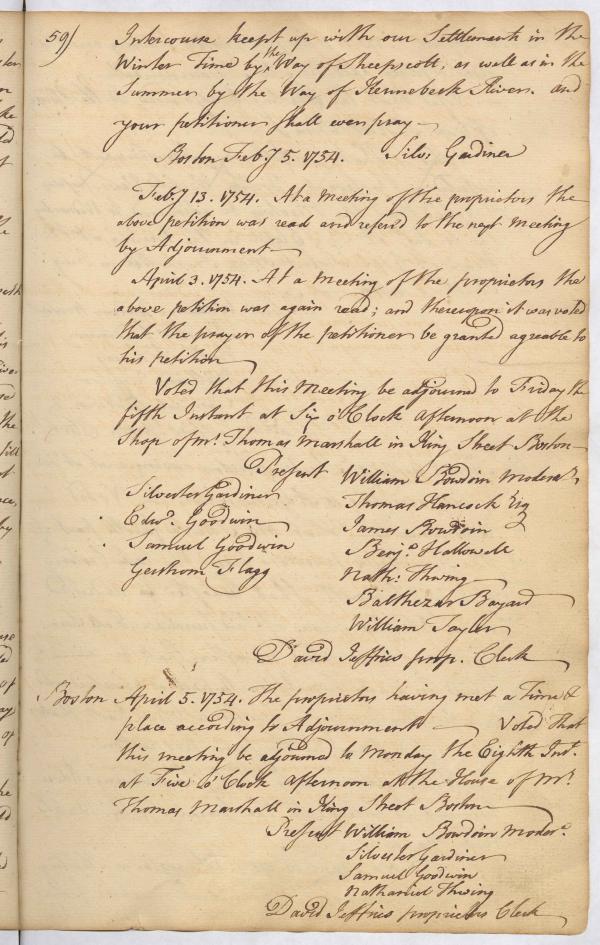 59)
Intercourse keept up with our Settlements in the
Winter Time by the Way of Sheepscott, as well as in the
Summer by the Way of Kennebeck River. and
your petitioner shall ever pray —
Boston Feb.y 5. 1754. Silv.r Gardiner
Feb.y 13. 1754. At a Meeting of the proprietors the
above petition was read and referd to the next Meeting
by Adjournment —
April 3. 1754. At a Meeting of the proprietors the
above petition was again read; and thereupon it was voted
that the prayer of the petitioner be granted agreable to
his petition —
Voted that this Meeting be adjourned to Friday the
fifth Instant at Six o'Clock afternoon at the
Shop of Mr. Thomas Marshall in King Street Boston —
Present William Bowdoin Moder.r
Silvester Gardiner Thomas Hancock Esq
Edw.d Goodwin James Bowdoin
Samuel Goodwin Benj.a Hallowell
Gershom Flagg Nath: Thwing
Balthezar Bayard
William Tayler
David Jeffries prop. Clerk
Boston April 5. 1754. The proprietors having met a Time &
place according to Adjournment — Voted that
this meeting be adjourned to Monday the Eighth Inst.
at Five o'Clock afternoon at the House of Mr.
Thomas Marshall in King Street Boston —
Present William Bowdoin Moder.r
Silvester Gardiner
Samuel Goodwin
Nathaniel Thwing
David Jeffries proprietors Clerk